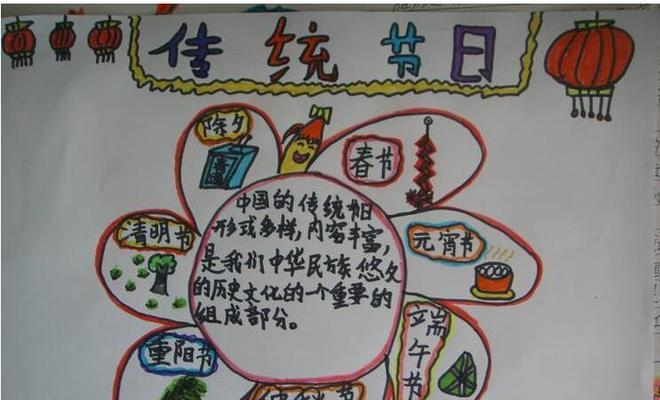 传统节日
除夕
春节
中国的传统节日
形式多样,内容丰富,
是我们中华民族悠久
的历史文化的一个重要的
组成部分。
清明节
元宵节
重阳节
端午节